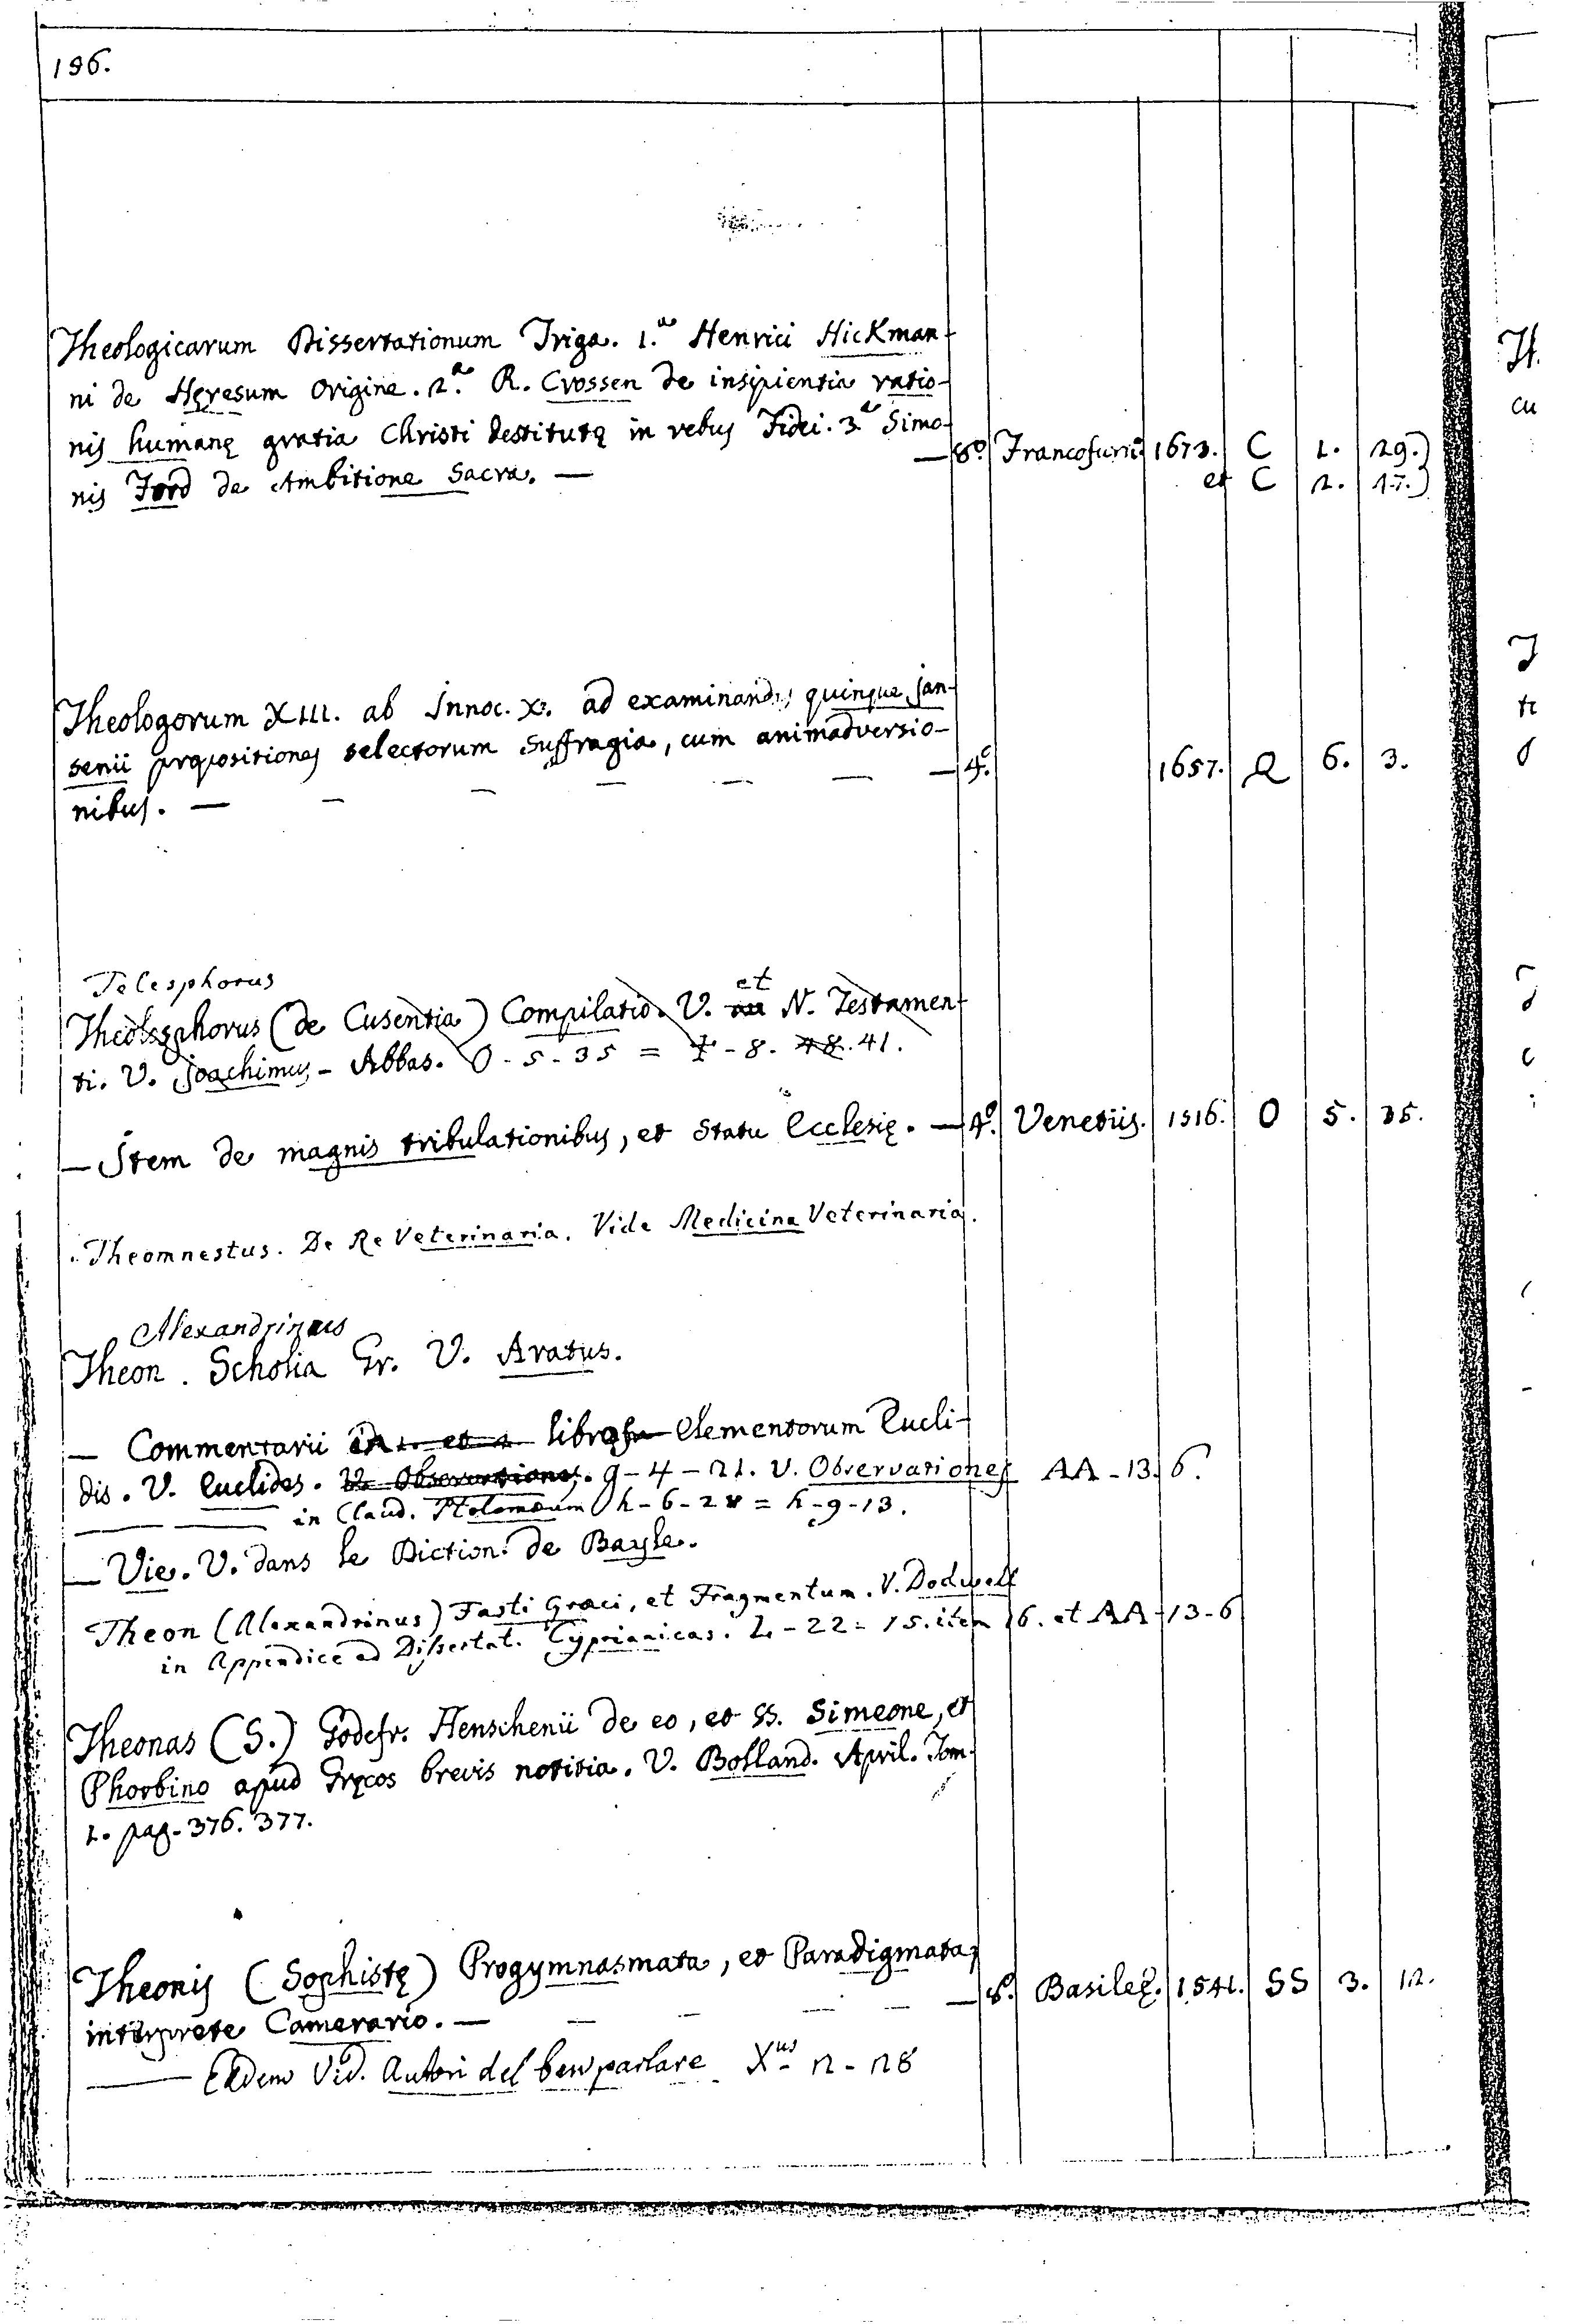 196.
Theologicarum Dissertationum Triga. 1.ª Henrici Hickman-
ni de Hęresum origine. 2.ª R. Crossen de insipientia ratio-
nis humanę gratia Christi destitutę in rebus Fidei. 3.ª Simo-
nis Ford de Ambitione Sacra. — — 8.º Francofurti 1673. C 1. 29.)
et C 2. 17.)
Theologorum XIII. ab Innoc. X. ad examinandas quinque Jan-
senii propositiones selectorum Suffragia, cum animadversio-
nibus. — — — — — — — 4.º 1657. Q 6. 3.
Telesphorus
Theolesphorus (de Cusentia) Compilatio. V. et N. Testamen-
ti. V. Joachimus - Abbas. O - 5 - 35 = - 8. 48. 41.
— Item de magnis tribulationibus, et Statu Ecclesię. — 4.º Venetiis. 1516. O 5. 35.
Theomnestus. De Re Veterinaria. Vide Medicina Veterinaria.
Alexandrinus
Theon. Scholia Gr. V. Aratus.
— Commentarii in 1. et 2. libros Elementorum Eucli-
dis. V. Euclides. V. Observationes. 9 - 4 - 21. V. Observationes AA - 13. 6.
— — in Claud. Ptolomæum h - 6 - 28 = h - 9 - 13.
— Vie. V. dans le Diction. de Bayle.
Theon (Alexandrinus) Fasti Græci, et Fragmentum. V. Dodwell
in Appendice ad Dissertat. Cyprianicas. L - 22 = 15. item 16. et AA - 13 - 6
Theonas (S.) Godefr. Henschenii de eo, et SS. Simeone, et
Phorbino apud Gręcos brevis notitia. V. Bolland. April. Tom.
1. pag. 376. 377.
Theonis (Sophistę) Progymnasmata, et Paradigmata,
interprete Camerario. — — — — — 8.º Basileę. 1541. SS 3. 12.
— Eadem Vid. Autori del ben parlare X.us 2 - 28